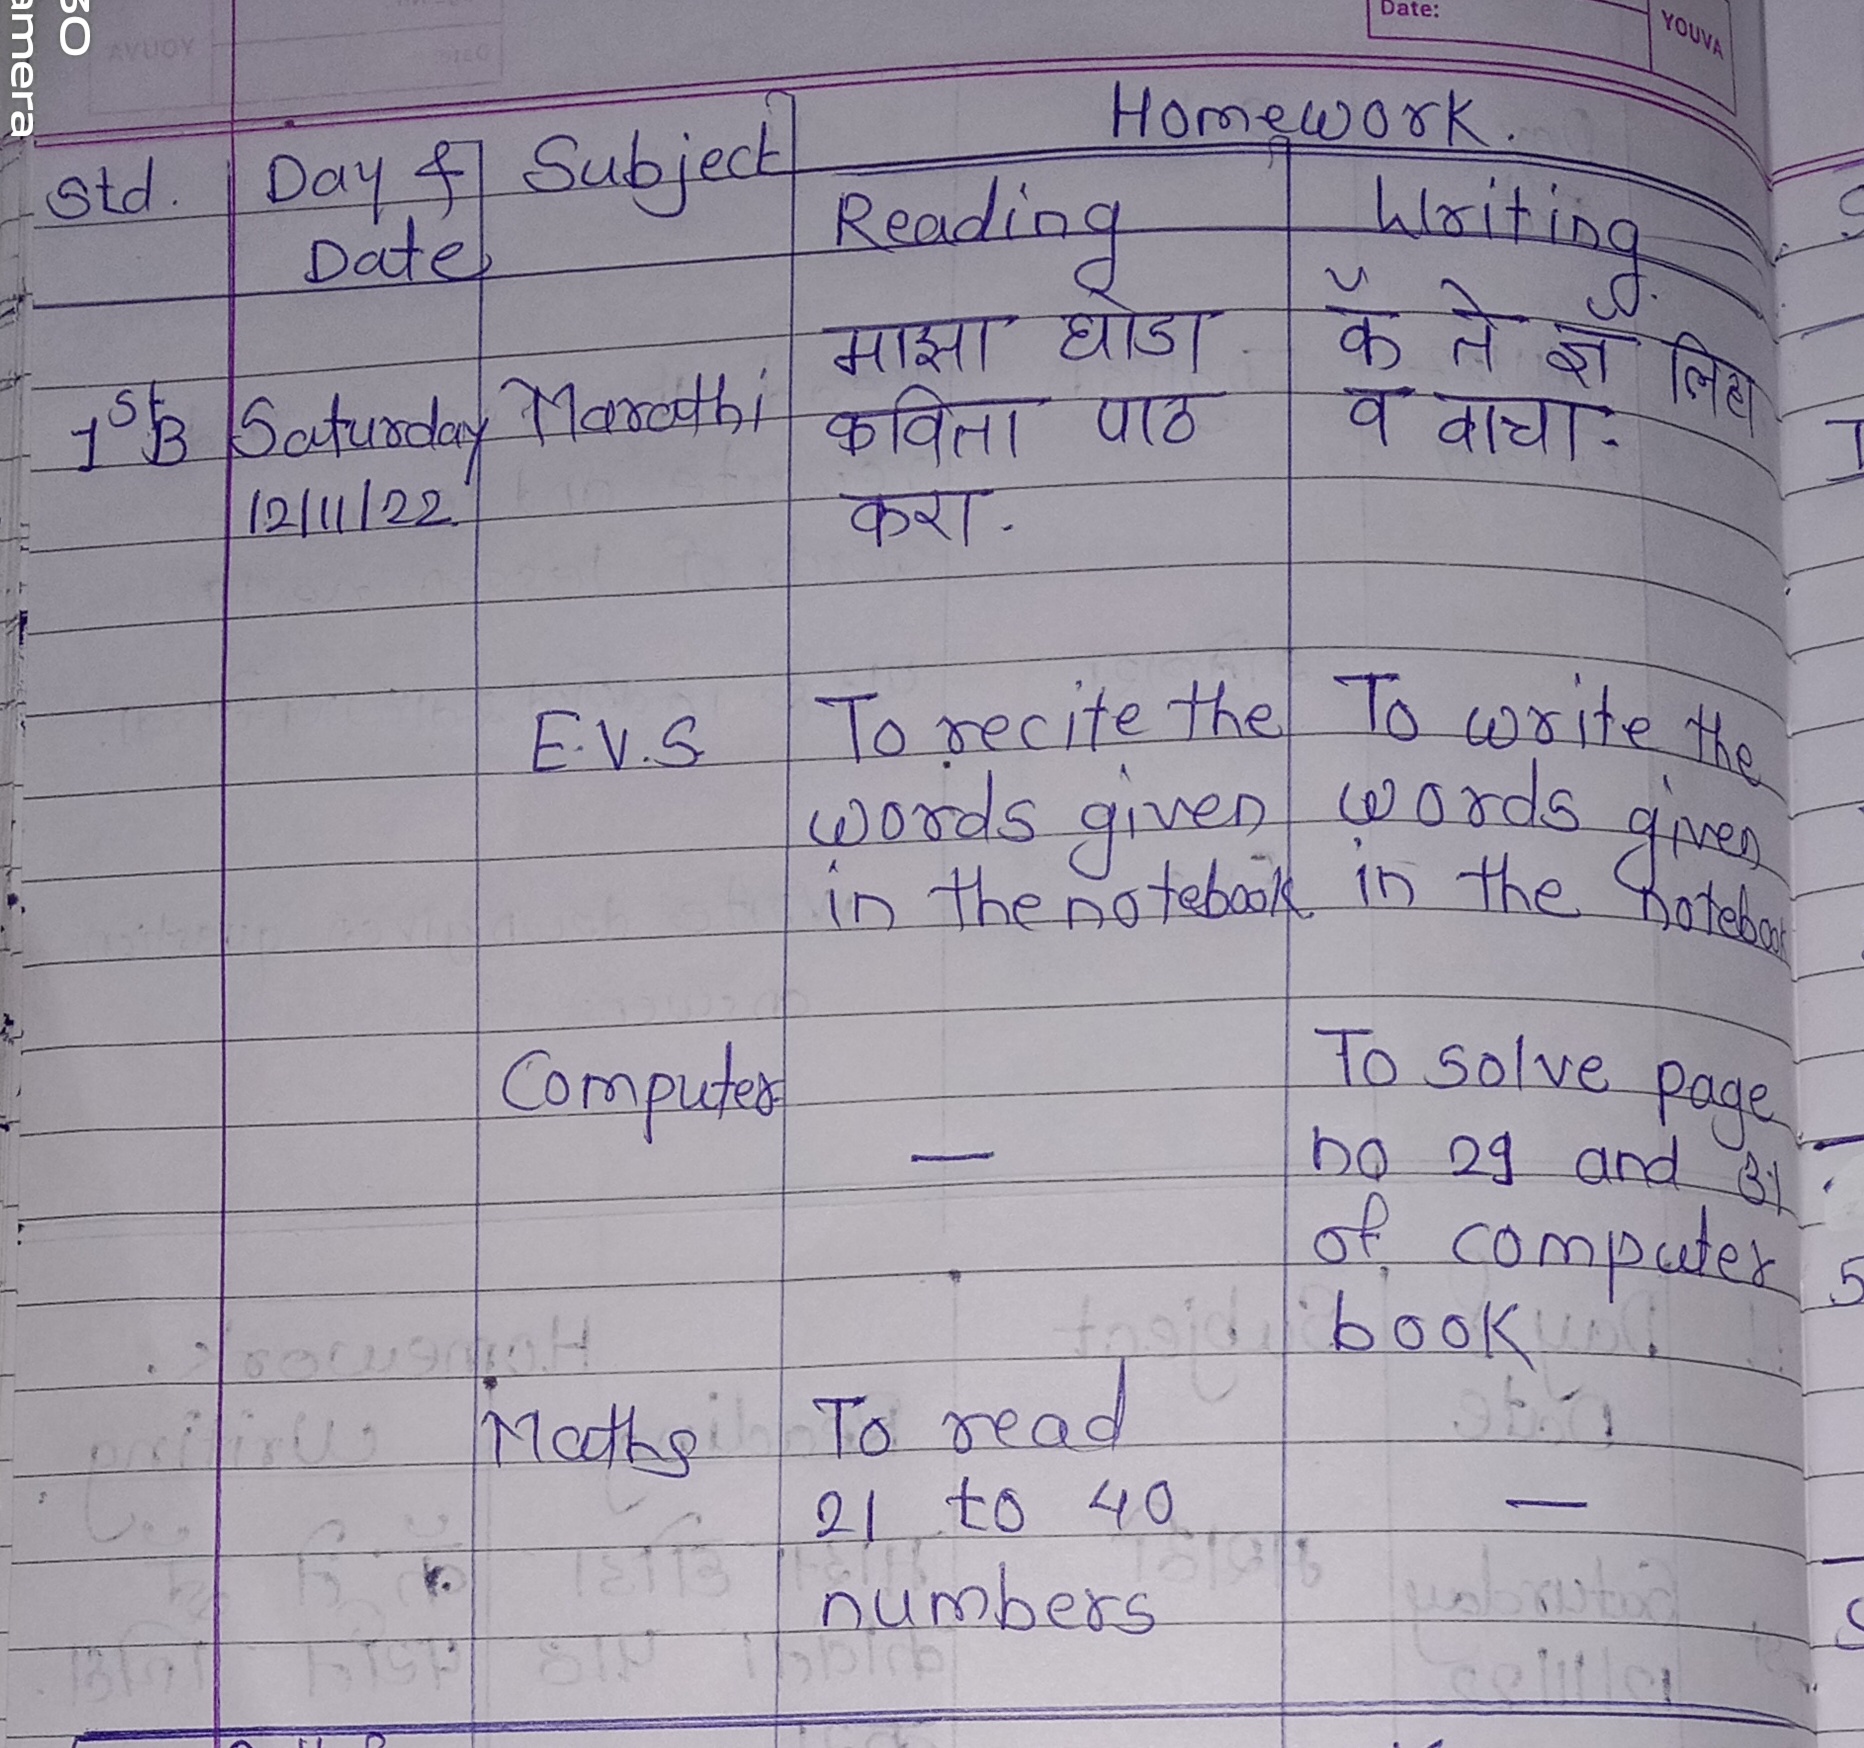 30
amera
Date:
YOUVA
Homework.
Std.
Day &
Date
Subject
Reading
Writing.
1st B
Saturday
12/11/22
Marathi
माझा घोडा
कविता पाठ
करा.
कॅ ते ज्ञॅ लिहा
व वाचा.
E.V.S
To recite the
words given
in the notebook
To write the
words given
in the notebook
Computer
—
To solve page
no 29 and 31
of computer
book
Maths
To read
21 to 40
numbers
—